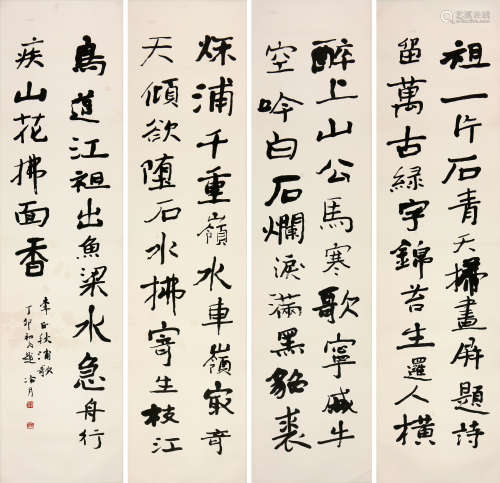 祖一片石青天掃畫屏題詩
留萬古綠字錦苔生邏人橫
醉上山公馬寒歌寧戚牛
空吟白石爛淚滿黑貂裘
秋浦千重嶺水車嶺最奇
天傾欲墮石水拂寄生枝江
鳥道江祖出魚梁水急舟行
疾山花拂面香
李白秋浦歌
丁卯初趙冷月